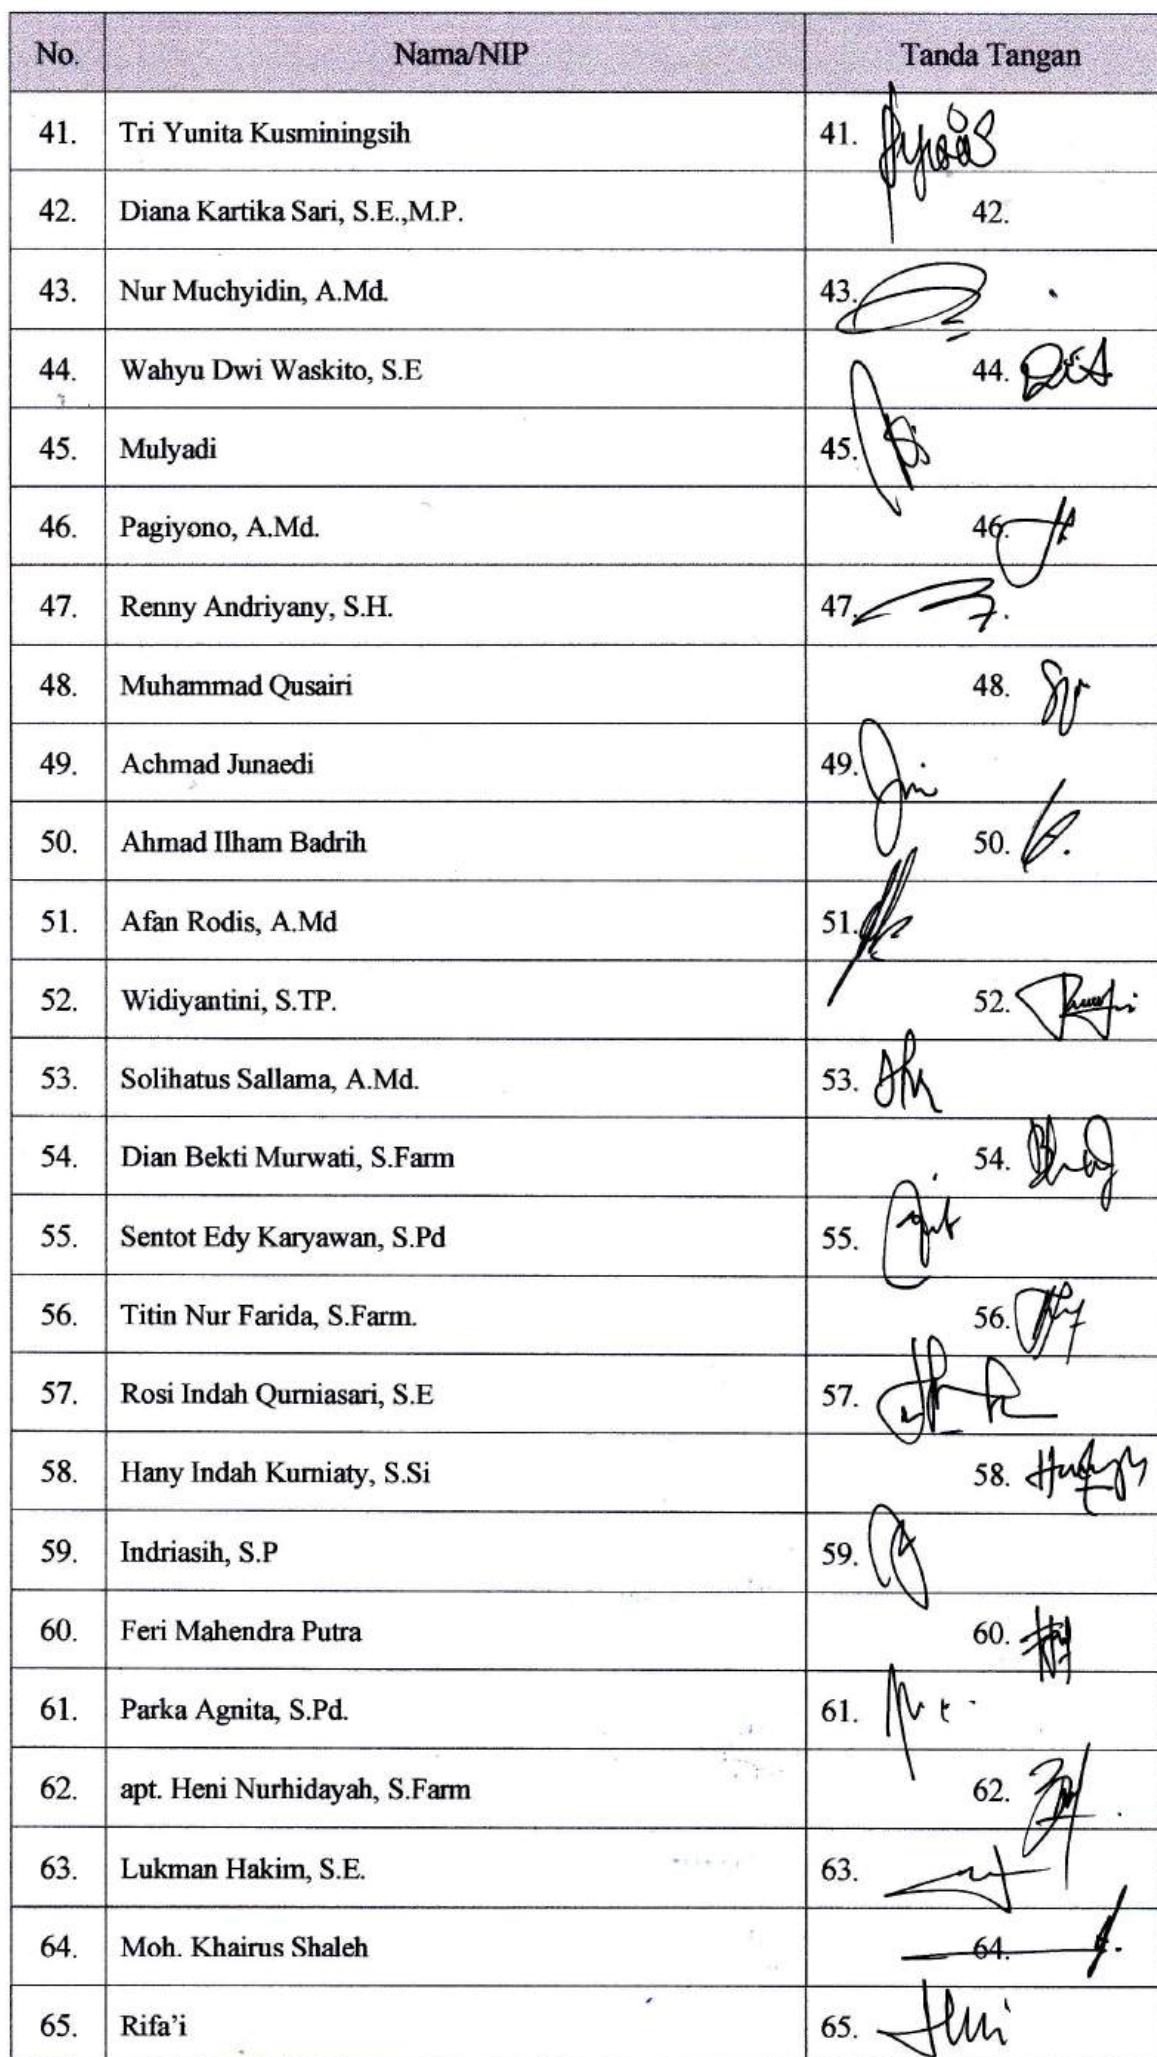 No. Nama/NIP Tanda Tangan
41. Tri Yunita Kusminingsih 41.
42. Diana Kartika Sari, S.E.,M.P. 42.
43. Nur Muchyidin, A.Md. 43.
44. Wahyu Dwi Waskito, S.E 44.
45. Mulyadi 45.
46. Pagiyono, A.Md. 46.
47. Renny Andriyany, S.H. 47.
48. Muhammad Qusairi 48.
49. Achmad Junaedi 49.
50. Ahmad Ilham Badrih 50.
51. Afan Rodis, A.Md 51.
52. Widiyantini, S.TP. 52.
53. Solihatus Sallama, A.Md. 53.
54. Dian Bekti Murwati, S.Farm 54.
55. Sentot Edy Karyawan, S.Pd 55.
56. Titin Nur Farida, S.Farm. 56.
57. Rosi Indah Qurniasari, S.E 57.
58. Hany Indah Kurniaty, S.Si 58.
59. Indriasih, S.P 59.
60. Feri Mahendra Putra 60.
61. Parka Agnita, S.Pd. 61.
62. apt. Heni Nurhidayah, S.Farm 62.
63. Lukman Hakim, S.E. 63.
64. Moh. Khairus Shaleh 64.
65. Rifa'i 65.